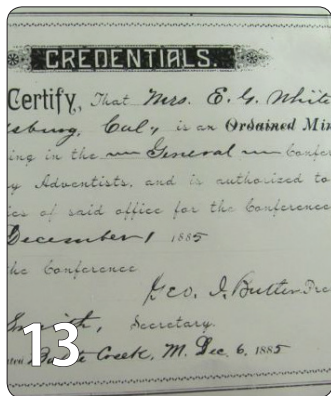 CREDENTIALS.
Certify, That Mrs. E. G. White
lsburg, Cal., is an Ordained Min
ing in the General Confer
y Adventists, and is authorized to
ies of said office for the Conference
December 1 1885
he Conference
Geo. I. Butler Pre
Smith, Secretary.
Battle Creek, M. Dec. 6, 1885
13